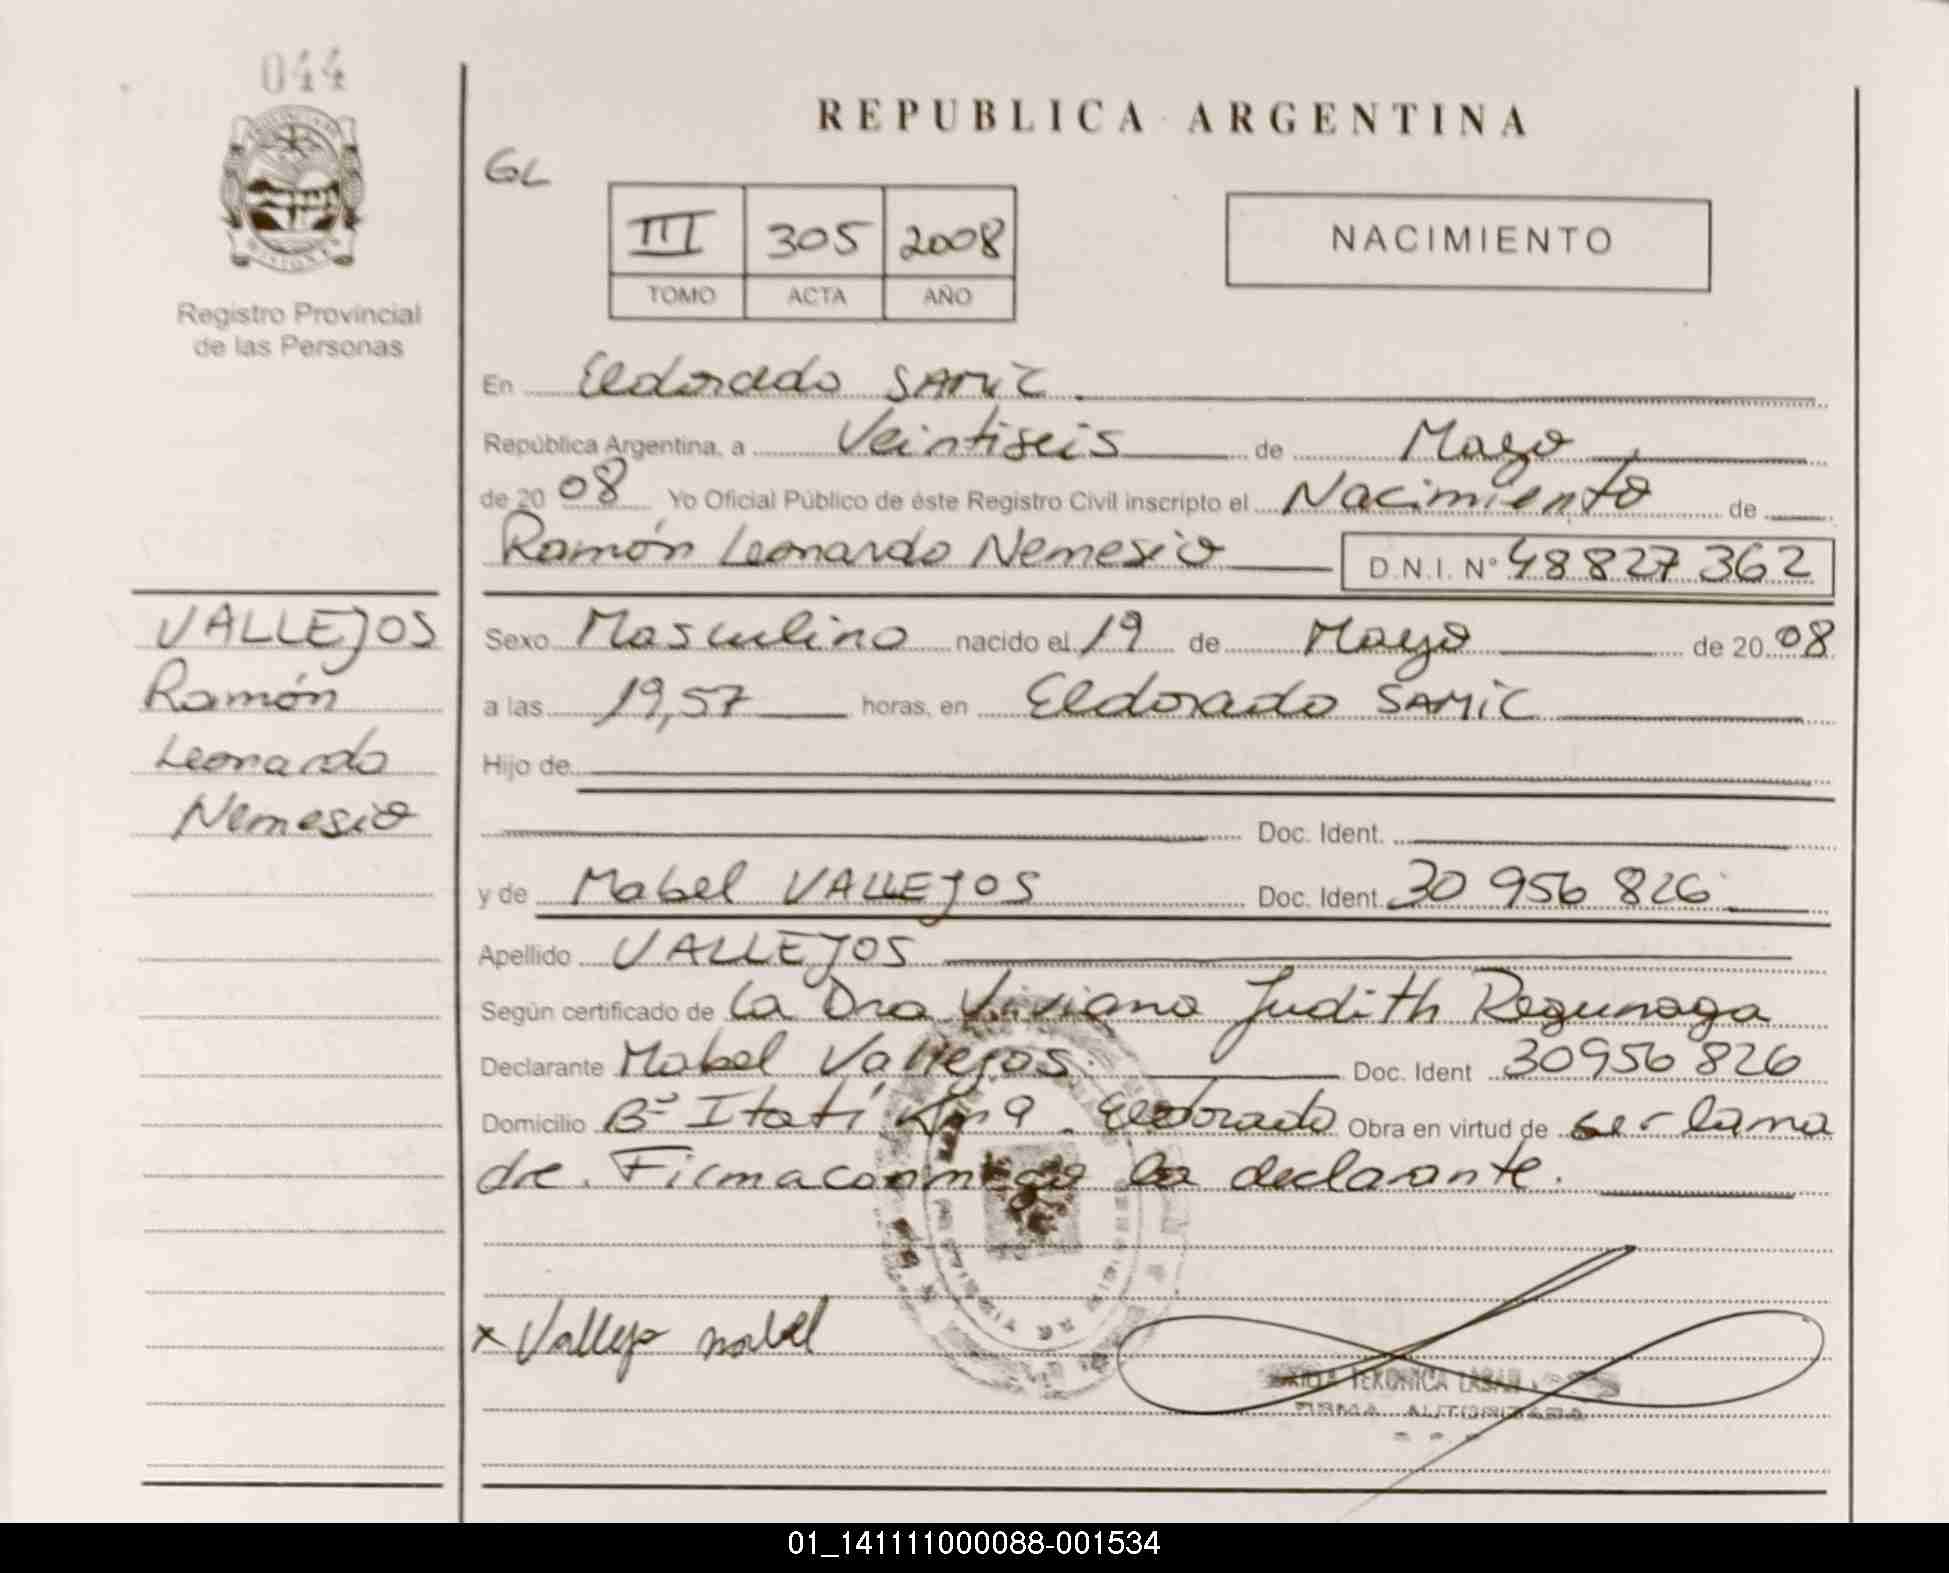 044
REPUBLICA ARGENTINA
GL
III 305 2008
TOMO ACTA AÑO
NACIMIENTO
Registro Provincial
de las Personas
En Eldorado SAMIC
República Argentina, a Veintiseis de Mayo
de 20 08 Yo Oficial Público de éste Registro Civil inscripto el Nacimiento de
Ramón Leonardo Nemesio D.N.I. N° 48827362
VALLEJOS
Ramón
Leonardo
Nemesio
Sexo Masculino nacido el 19 de Mayo de 20 08
a las 19,57 horas, en Eldorado SAMIC
Hijo de
Doc. Ident.
y de Mabel VALLEJOS Doc. Ident. 30 956 826
Apellido VALLEJOS
Según certificado de La Dra Viviana Judith Regunaga
Declarante Mabel Vallejos. Doc. Ident 30956 826
Domicilio Bº Itatí Km 9. Eldorado Obra en virtud de ser la ma
dre. Firma conmigo la declarante.
x Vallejo mabel
FIRMA AUTORIZADA
01_141111000088-001534